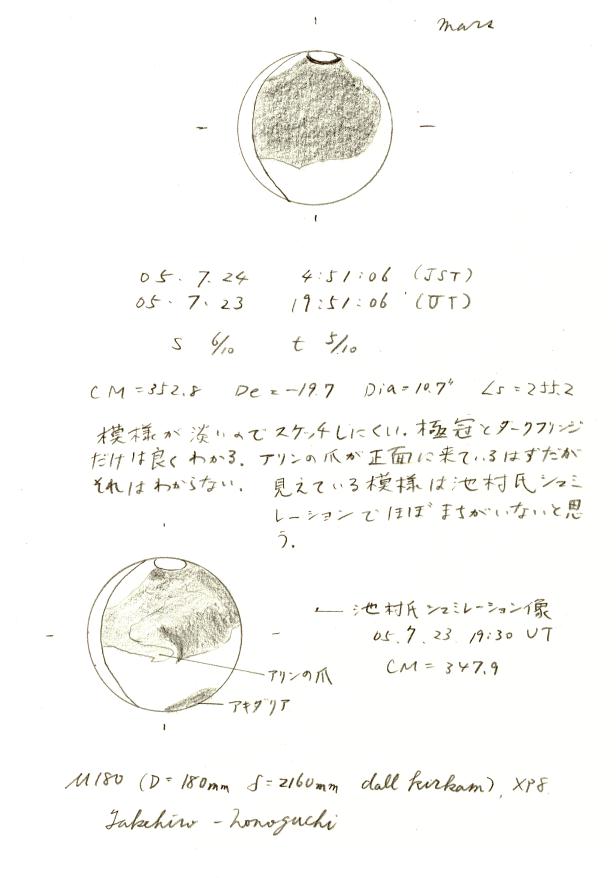 Mars
05. 7. 24 4:51:06 (JST)
05. 7. 23 19:51:06 (UT)
S 6/10 t 5/10
CM=352.8 De=-19.7 Dia=10.7" Ls=255.2
模様が淡いのでスケッチしにくい. 極冠とダークフリンジ
だけは良くわかる. アリンの爪が正面に来ているはずだが
それはわからない. 見えている模様は池村氏シュミ
レーションでほぼまちがいないと思
う.
← 池村氏シュミレーション像
05. 7. 23 19:30 UT
CM=347.9
アリンの爪
アキダリア
M180 (D=180mm f=2160mm dall kirkam), XP8
Takehiro - Konoguchi